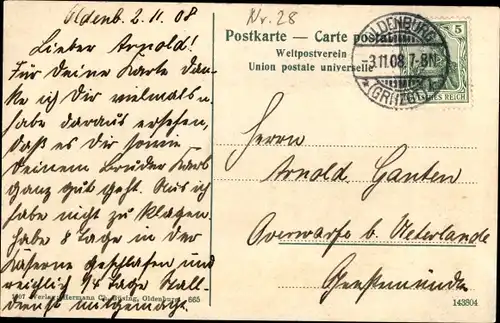 Oldenb. 2.11.08
Nr. 28
Lieber Arnold!
Für Deine Karte dan-
ke ich Dir vielmals u.
habe daraus ersehen,
daß es Dir sowie
Deinem Bruder Karl
ganz gut geht. Auch ich
habe nicht zu klagen.
Habe 8 Tage in der
Kaserne geschlafen und
reichlich 1/4 Tage Stall-
dienst mitgemacht.
Postkarte — Carte postale
Weltpostverein
Union postale universelle
OLDENBURG
-3.11.08. 7-8N
*(GRHZGT.)
5
DEUTSCHES REICH
Herrn
Arnold Ganten
Overwarfe b. Neterlande
Geestemünde
1907 Verlag Hermann Ch. Büsing, Oldenburg 665
143804